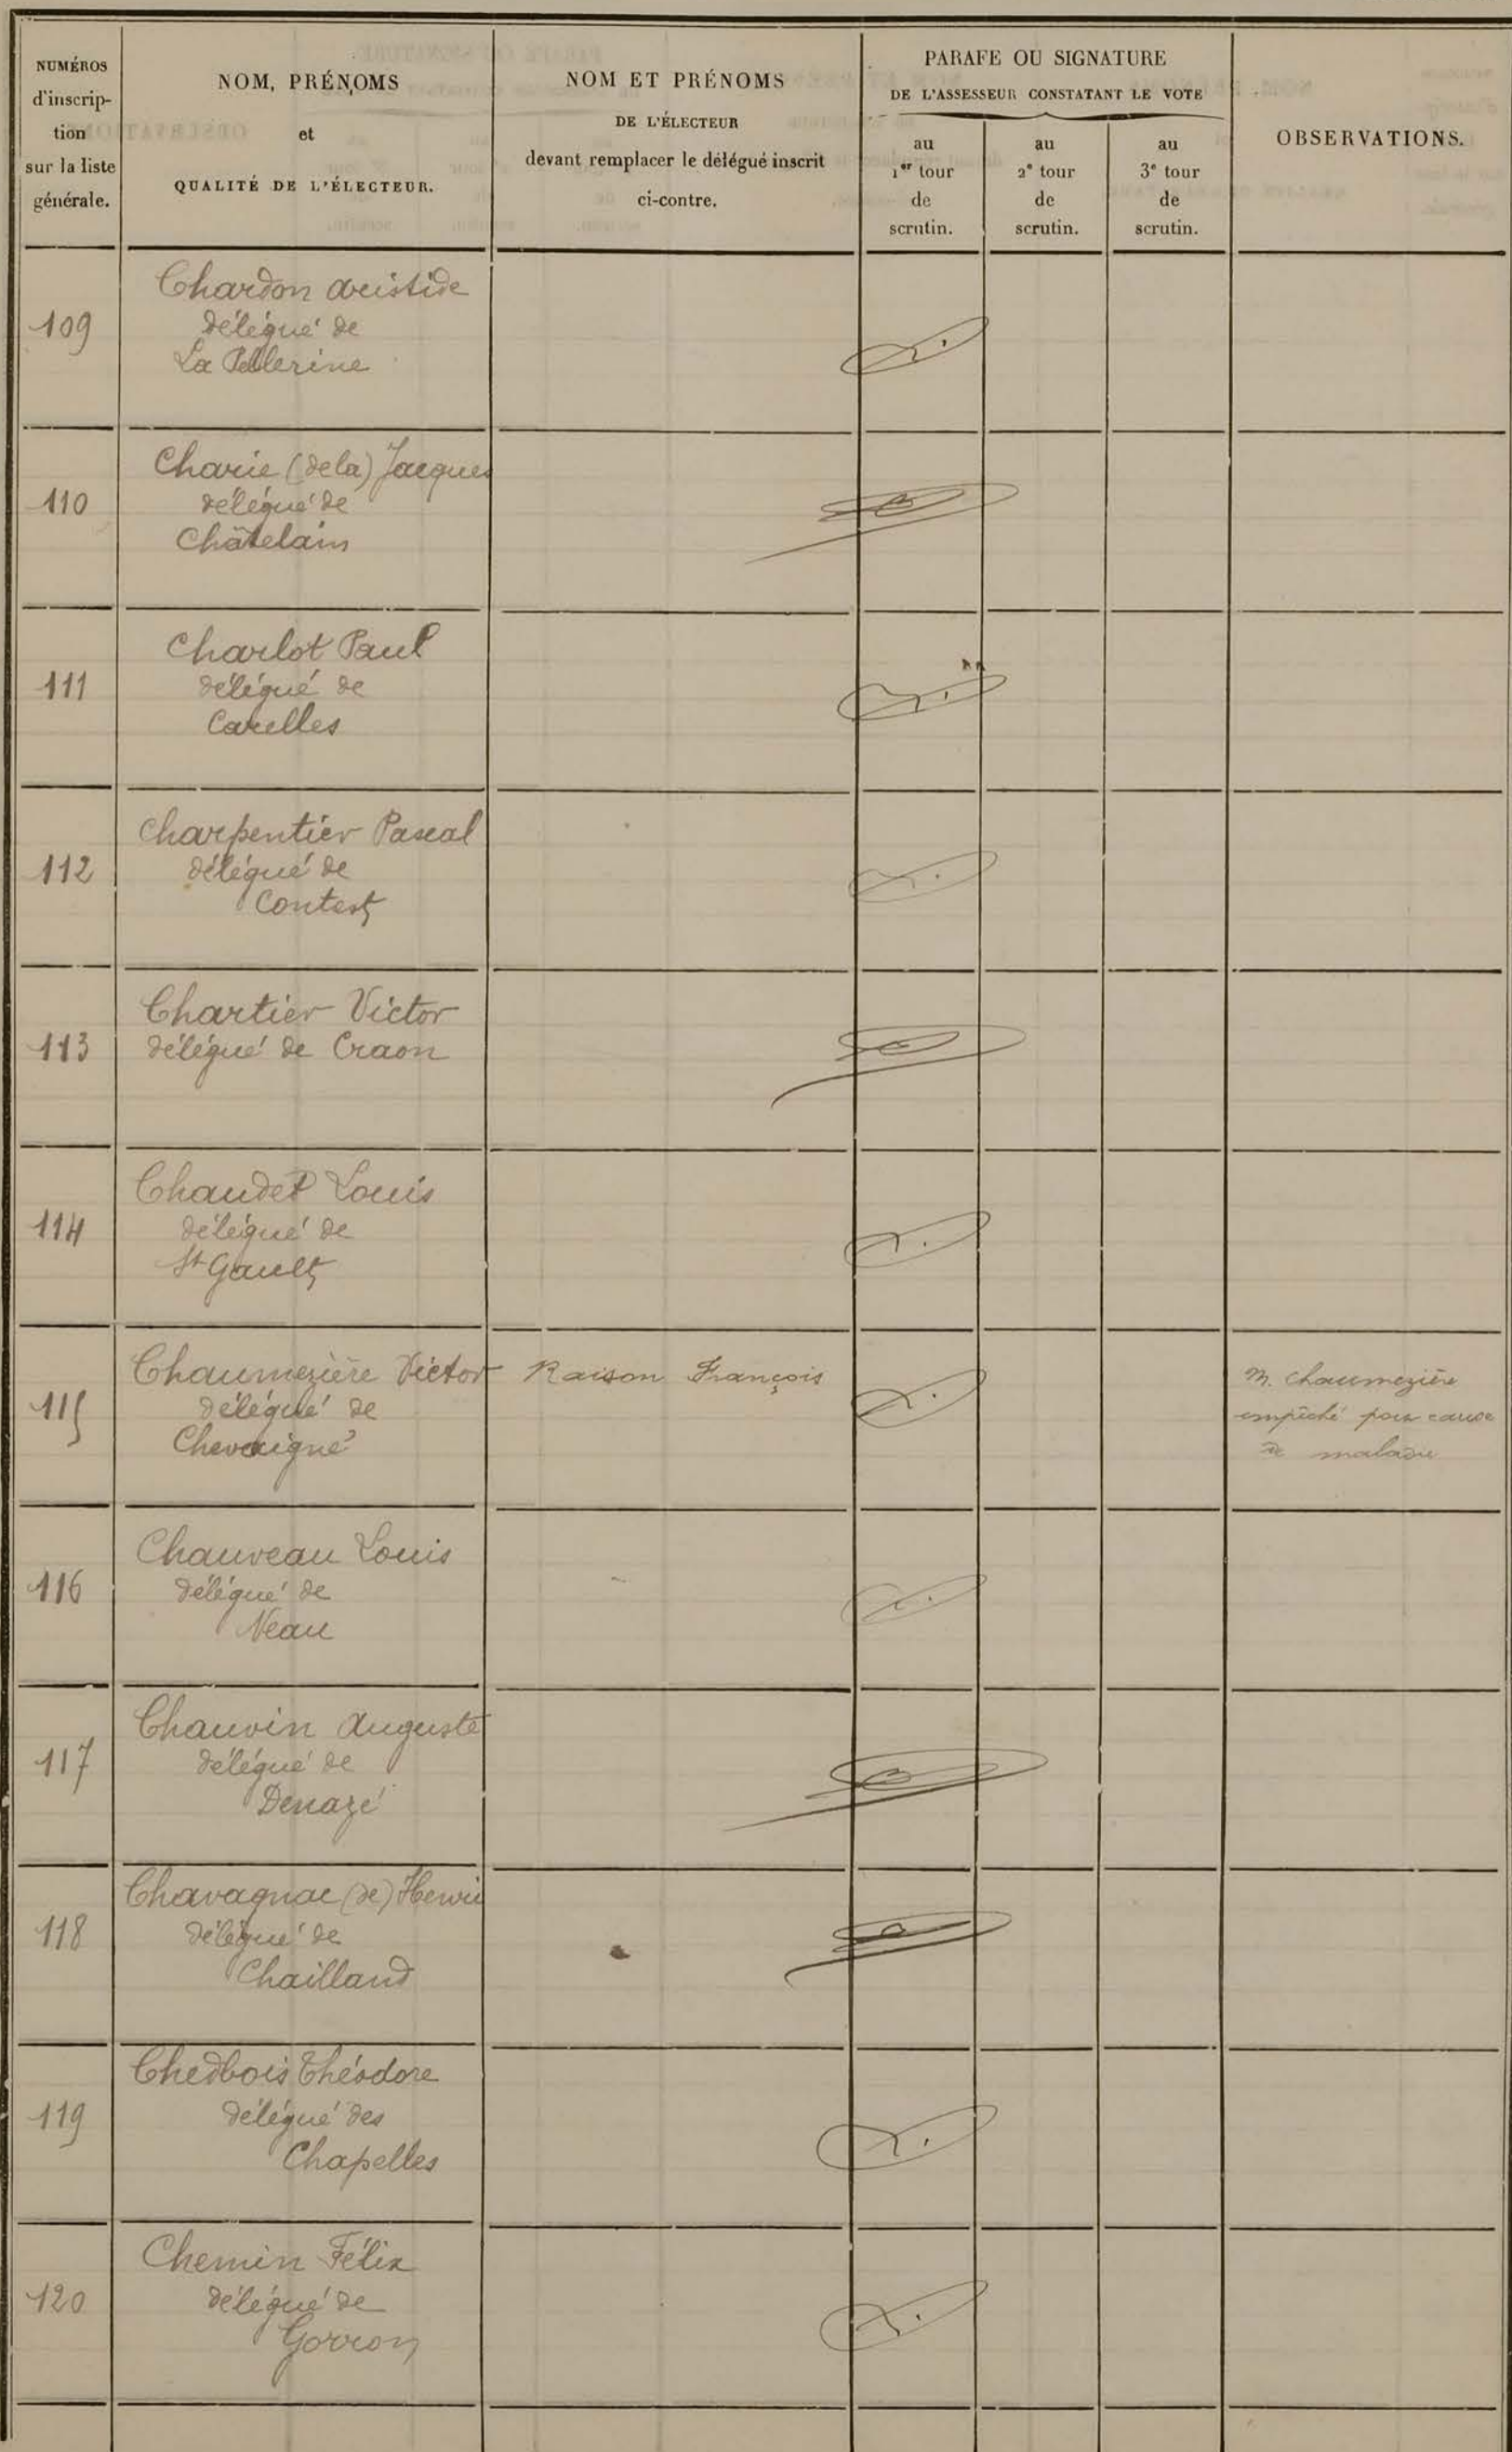 NUMÉROS
d'inscrip-
tion
sur la liste
générale.
NOM, PRÉNOMS
et
QUALITÉ DE L'ÉLECTEUR.
NOM ET PRÉNOMS
DE L'ÉLECTEUR
devant remplacer le délégué inscrit
ci-contre.
PARAFE OU SIGNATURE
DE L'ASSESSEUR CONSTATANT LE VOTE
au
1er tour
de
scrutin.
au
2e tour
de
scrutin.
au
3e tour
de
scrutin.
OBSERVATIONS.
109
Chardon Aristide
délégué de
La Pellerine
110
Charie (de la) Jacques
délégué de
Châtelain
111
Charlot Paul
délégué de
Carelles
112
Charpentier Pascal
délégué de
Contest
113
Chartier Victor
délégué de Craon
114
Chaudet Louis
délégué de
St Gault
115
Chaumezière Victor
délégué de
Chevaigné
Raison François
M. Chaumezière
empêché pour cause
de maladie
116
Chauveau Louis
délégué de
Neau
117
Chauvin Auguste
délégué de
Denazé
118
Chavagnac (de) Henri
délégué de
Chailland
119
Chedbois Théodore
délégué des
Chapelles
120
Chemin Félix
délégué de
Gorron